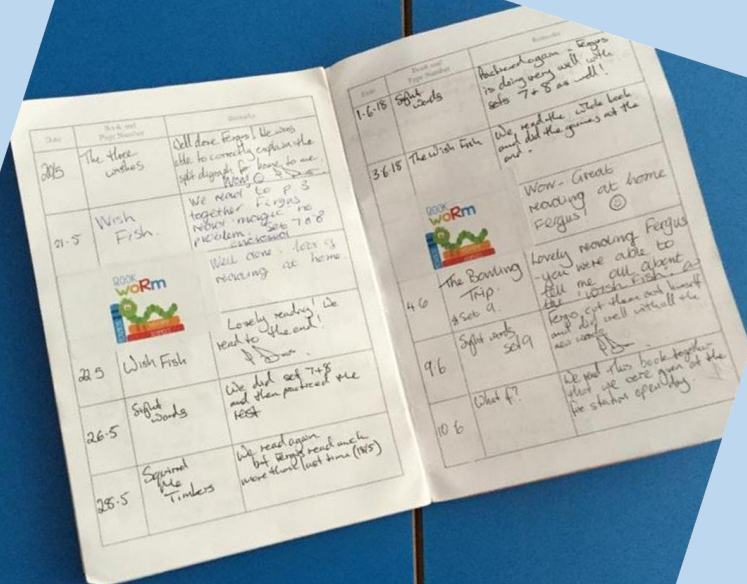 Date
Book and Page Number
Remarks
20/5
The three wishes
Well done Fergus! He was
able to correctly explain the
split digraph for home to me.
Wow! ☺
21.5
Wish
Fish.
We read to p 3
together Fergus
read magic no
problem. Sets 7+8
enclosed
BOOK
WORM
Well done. lots of
reading at home
22.5
Wish Fish
Lovely reading! We
read to the end!
26.5
Sight
words
We did set 7+8
and then practiced the
rest
28.5
Squirrel
Me
Timbers
We read again
but Fergus read much
more than last time (18/5)
Date
Book and
Page Number
Remarks
1.6.18
Sight
words
Practiced again - Fergus
is doing very well with
sets 7+8 as well!
3.6.18
The Wish Fish
We read the whole book
and did the games at the
end.
BOOK
WORM
Wow - Great
reading at home
Fergus! ☺
4.6
The Bowling
Trip.
& Set 9.
Lovely reading Fergus
- you were able to
tell me all about
the 'Wish Fish'
9.6
Sight words
set 9
Fergus cut them out himself
and did well with all the
new words.
10.6
What if?
We read this book together
that we were given at the
fire station open day